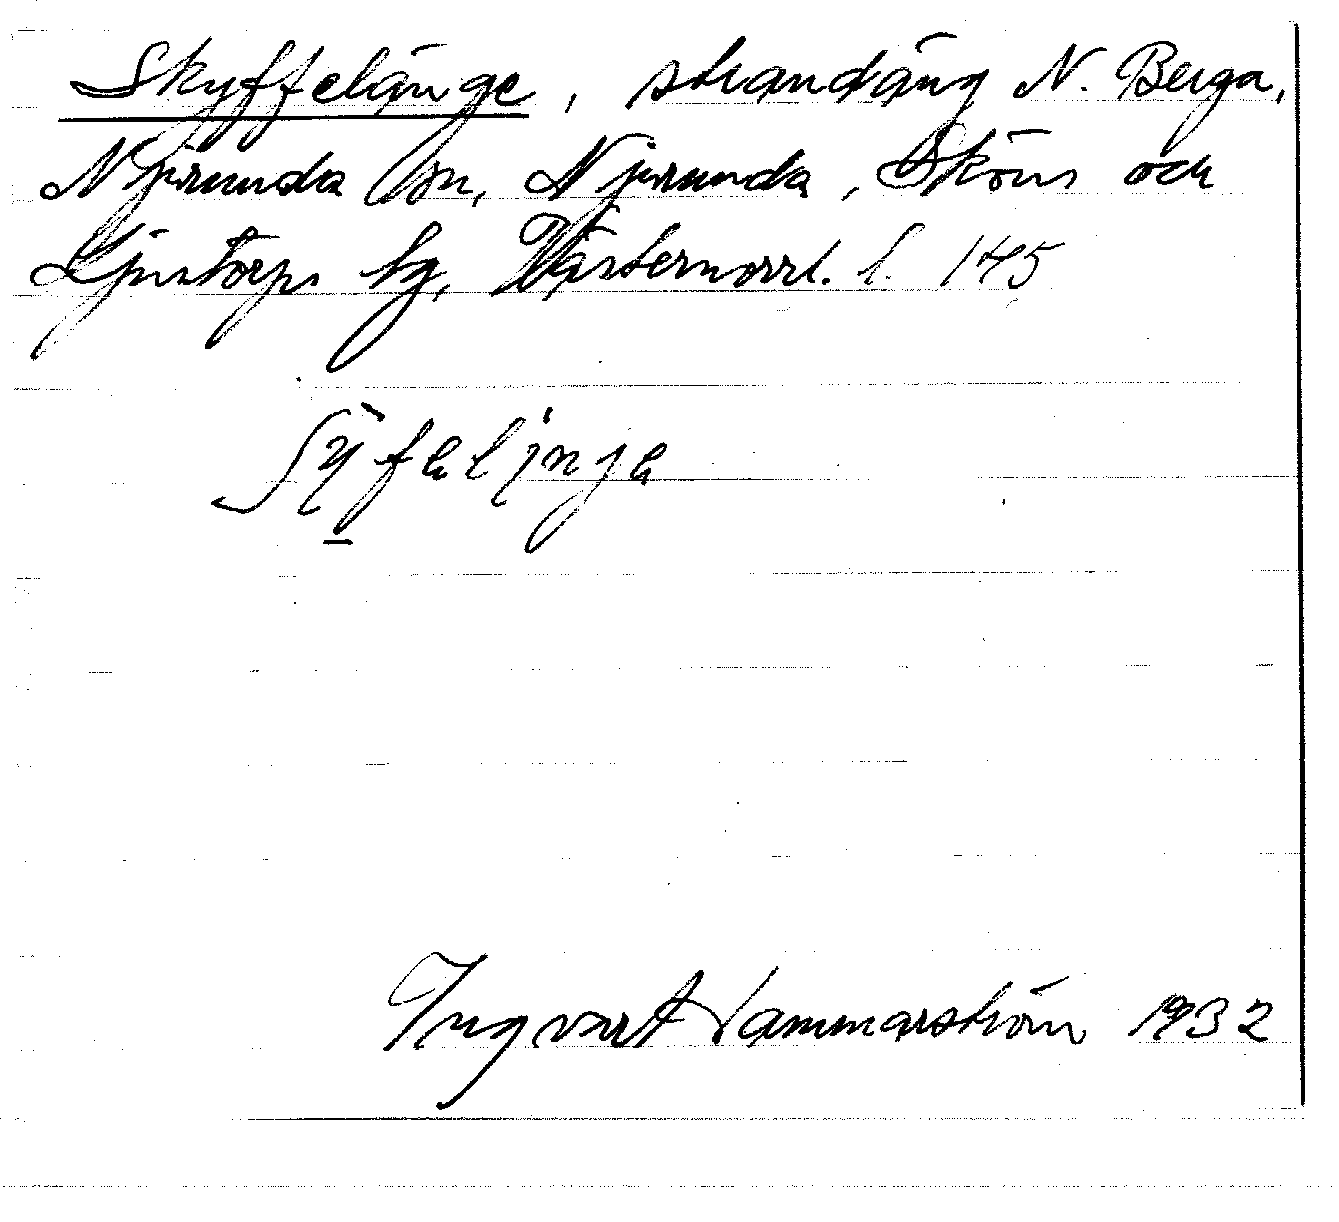 Skyffelänge, strandäng N. Berga,
Njurunda sn, Njurunda, Sköns och
Ljustorps tg, Västernorrl. l. 145
Ingvart Hammarström 1932